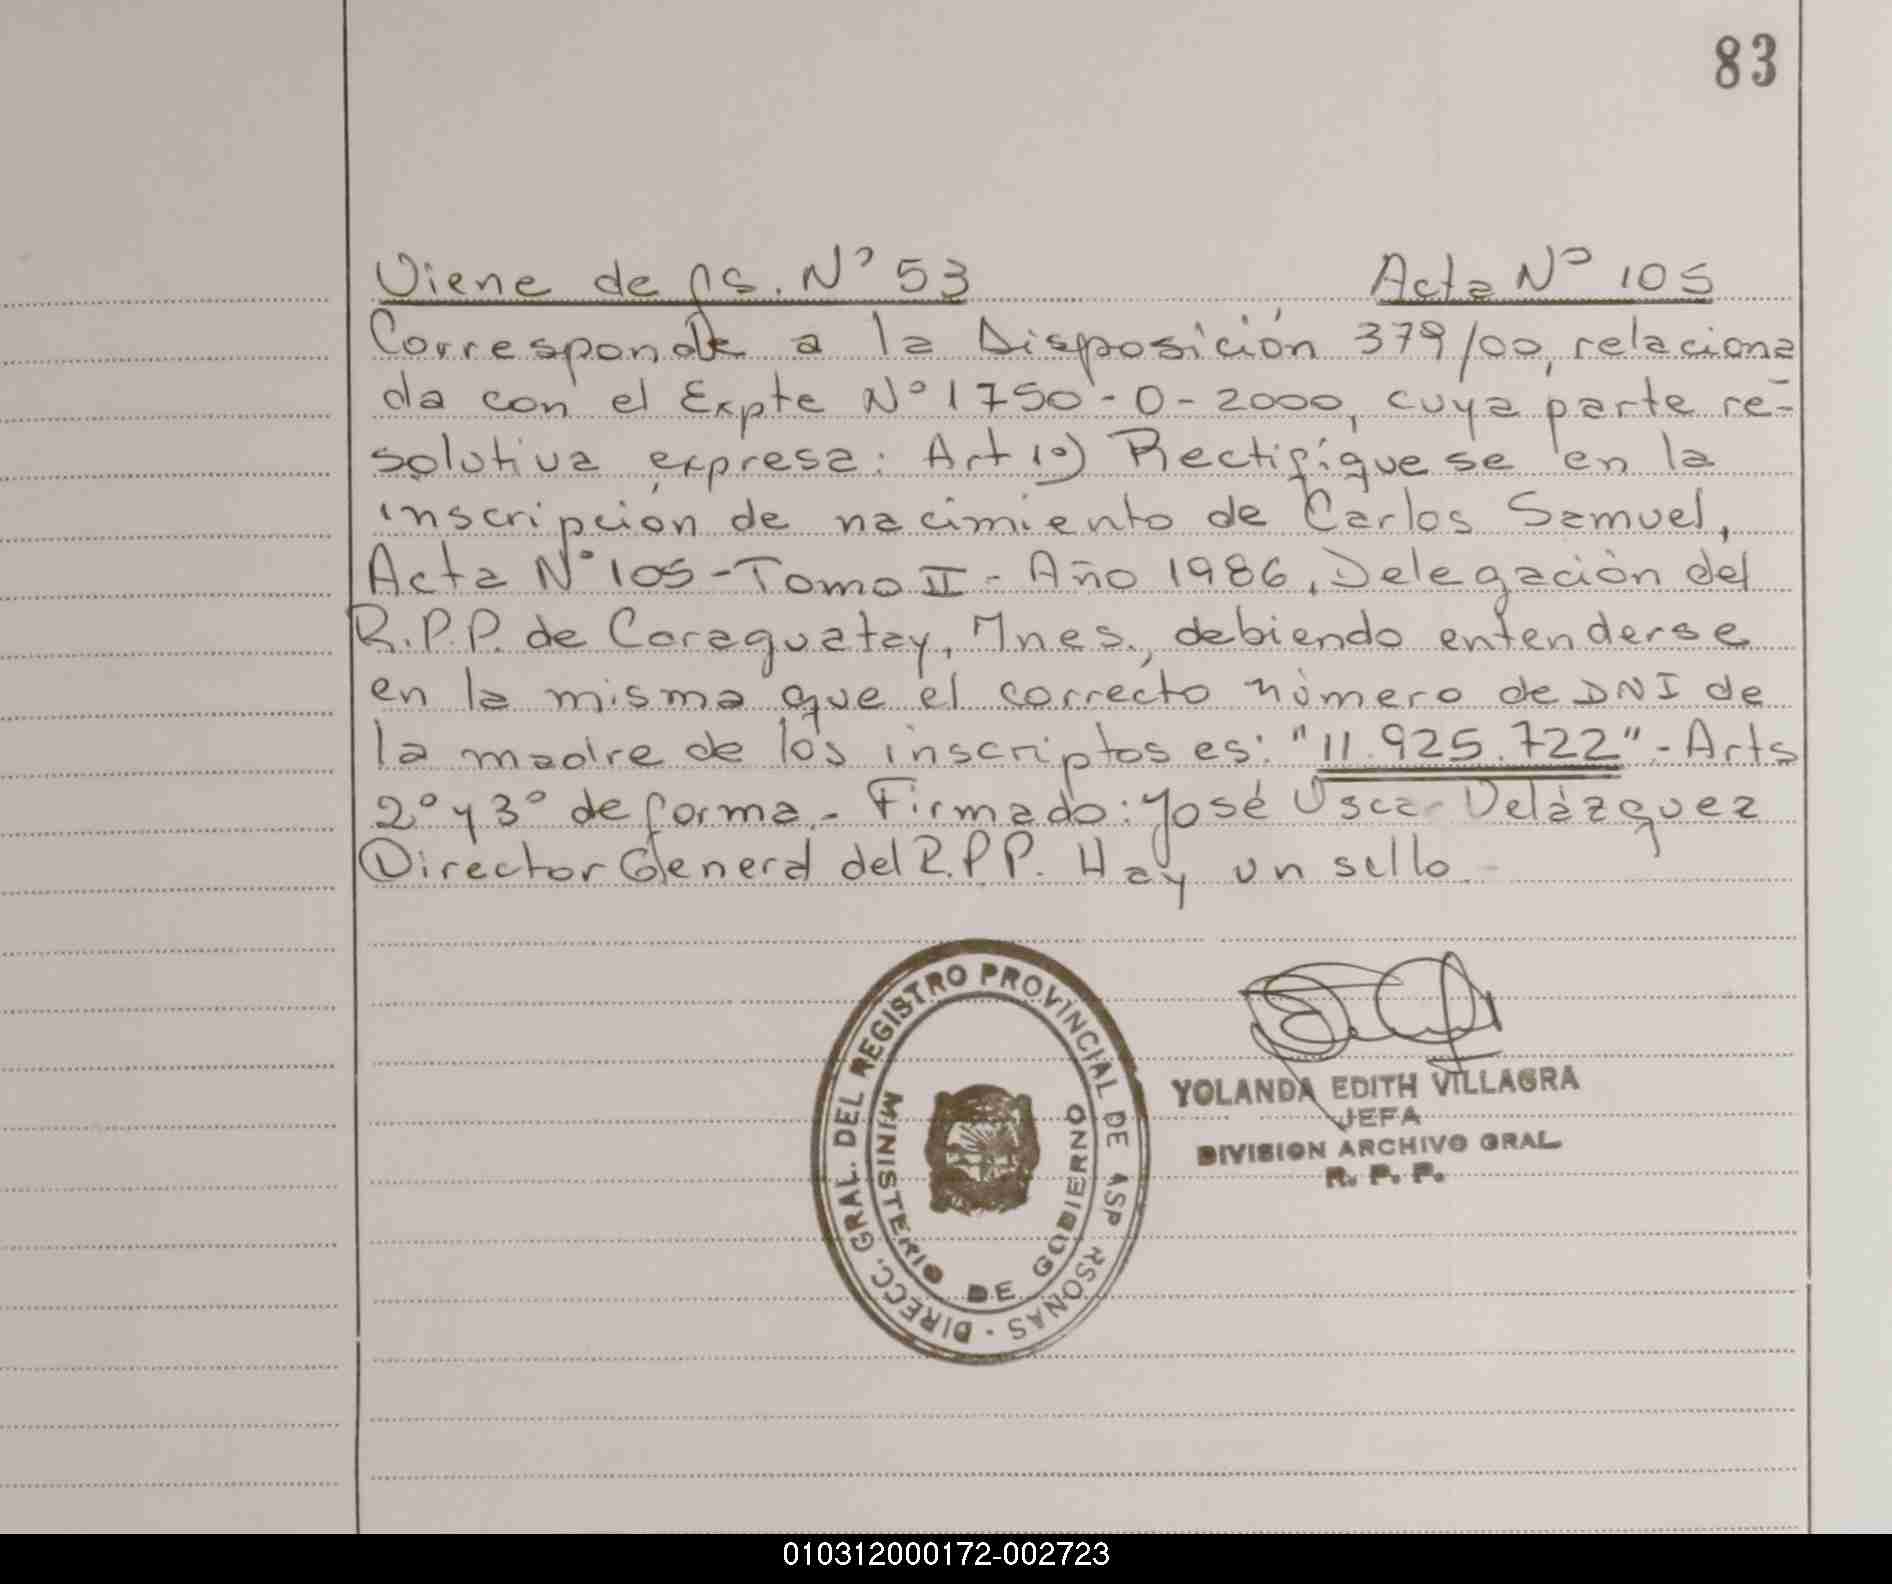 83
Viene de fs. Nº 53 Acta Nº 105
Corresponde a la Disposición 379/00, relaciona
da con el Expte Nº 1750-0-2000, cuya parte re-
solutiva expresa: Art 1º) Rectifíquese en la
inscripción de nacimiento de Carlos Samuel,
Acta Nº 105 - Tomo II - Año 1986, Delegación del
R.P.P. de Caraguatay, Mnes., debiendo entenderse
en la misma que el correcto número de DNI de
la madre de los inscriptos es: "11.925.722" - Arts
2º y 3º de forma.- Firmado: José Oscar Velázquez
Director General del R.P.P. Hay un sello.-
DIRECC. GRAL. DEL REGISTRO PROVINCIAL DE ASP RSONAS -
MINISTERIO DE GOBIERNO
YOLANDA EDITH VILLAGRA
JEFA
DIVISION ARCHIVO GRAL.
R. P. P.
010312000172-002723